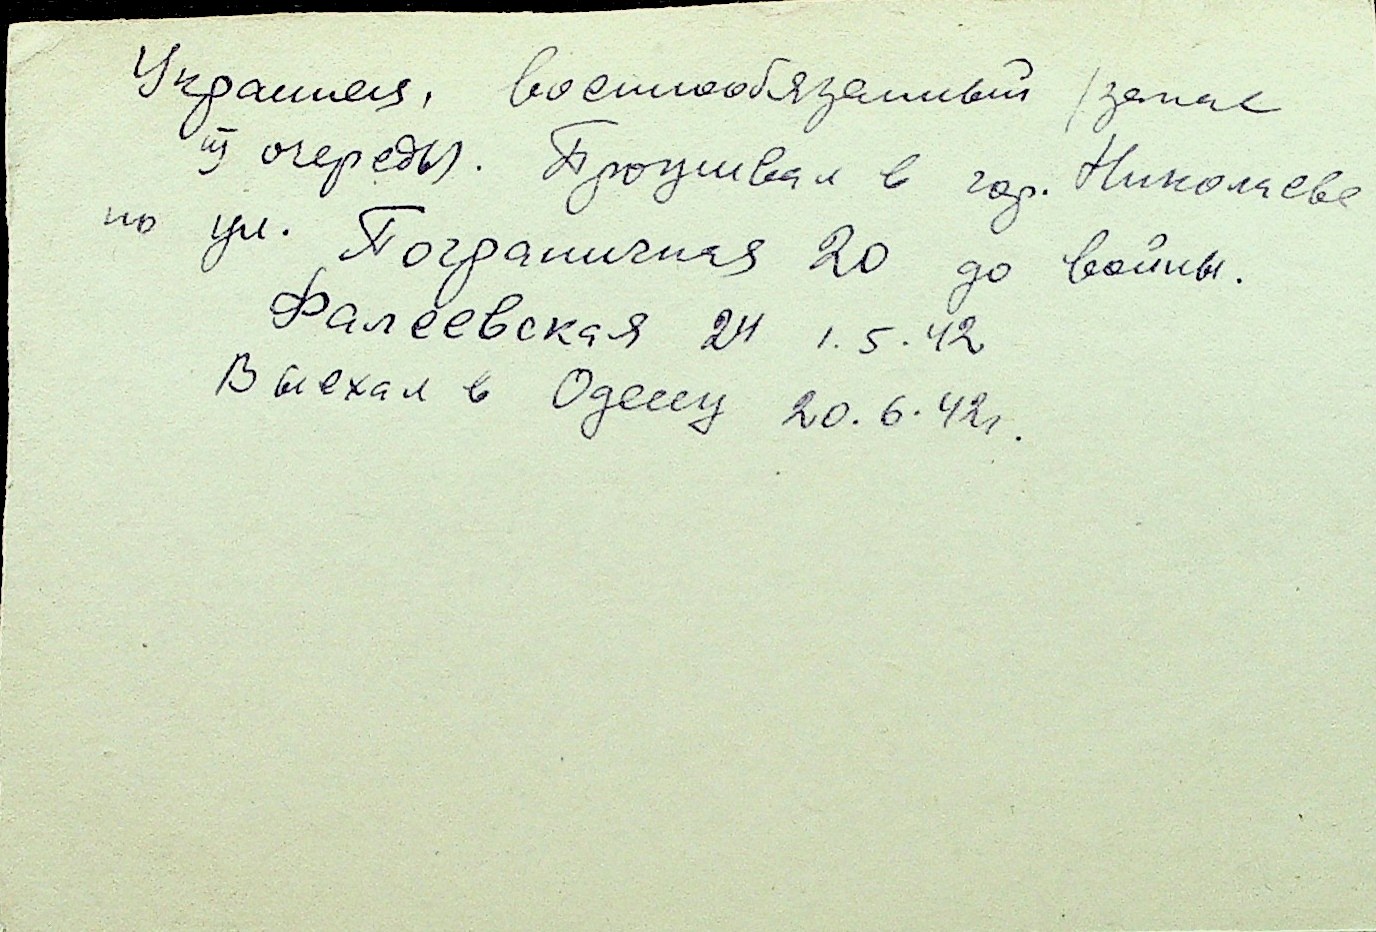 Украинец, военнообязанный /запас
III очереды). Проживал в гор. Николаеве
по ул. Пограничная 20 до войны.
Фалеевская 24 1.5.42
Выехал в Одессу 20.6.42г.